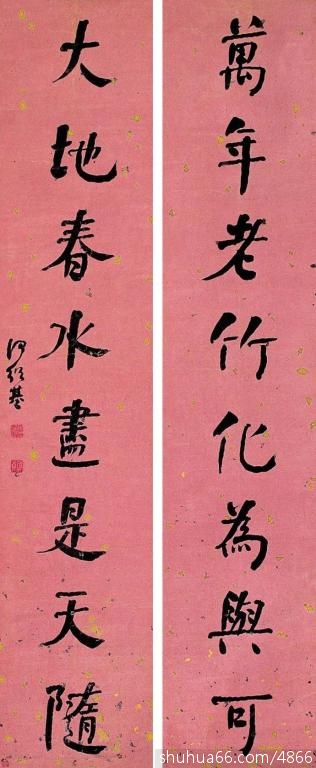 萬年老竹化為與可
大地春水盡是天隨
何紹基
shuhua66.com/4866